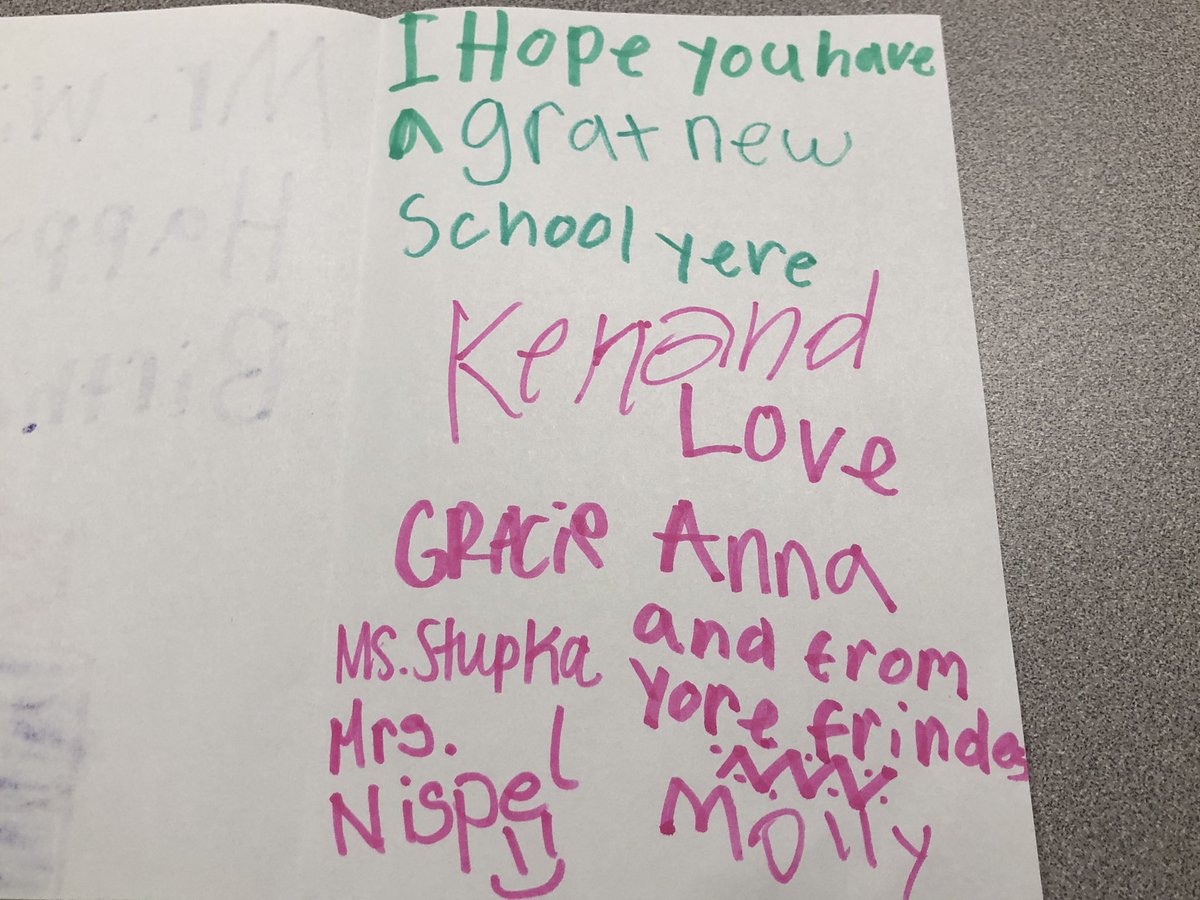 I Hope you have
a grat new
School yere
Kenand
Love
GRACIE Anna
Ms. Stupka and from
Mrs. Yore frindes
Nispel Molly
Mr. W
Happ
Birth